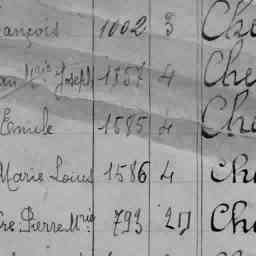 ançois 1002 3 Che
an Mie Joseph 1837 4 Che
Emile 1585 4 Che
Marie Louis 1586 4 Che
re Pierre Mie 793 Ch